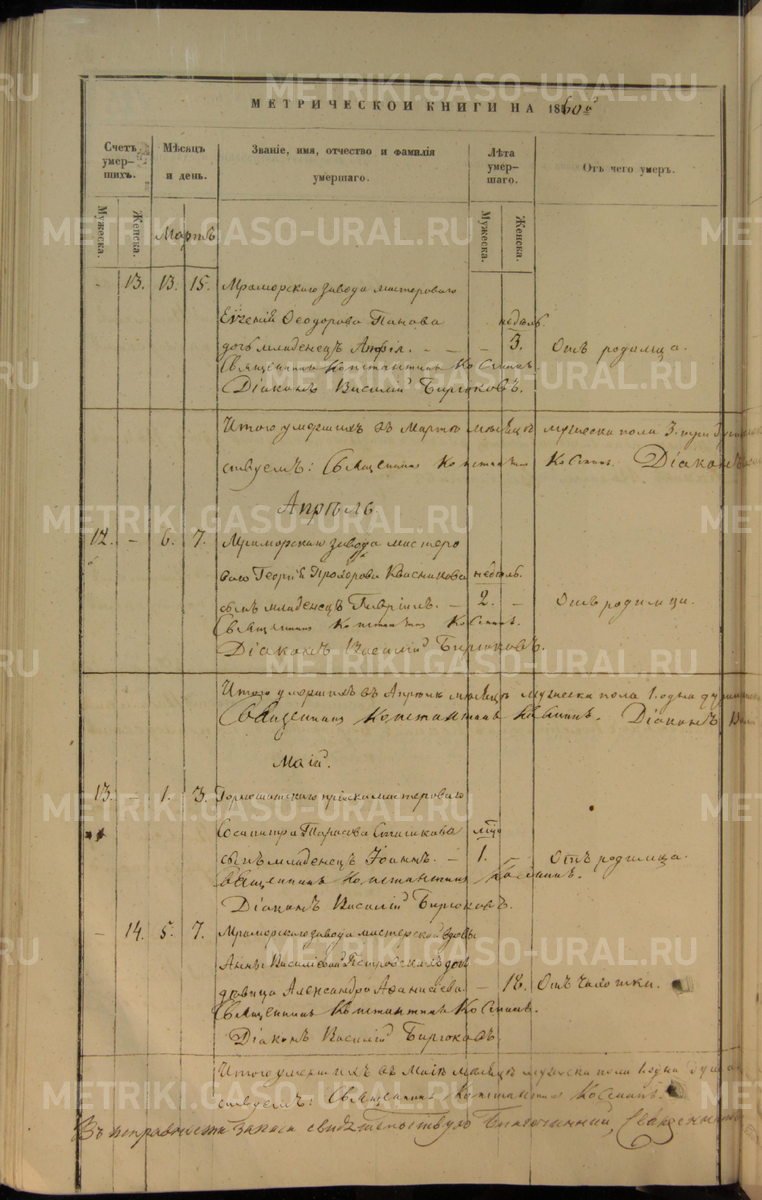 МЕТРИЧЕСКОЙ КНИГИ НА 1860й
Счетъ умер-шихъ.
Мѣсяцъ и день.
Званіе, имя, отчество и фамилія умершаго.
Лѣта умер-шаго.
Отъ чего умеръ.
Мужеска. Женска. Мужеска. Женска.
Мартъ
- 13. 13. 15. Мраморскаго завода мастероваго
Евгенія Ѳеодорова Панова недѣль.
дочь младенецъ - - - 3. Отъ родимца.
Священникъ Константинъ Косминъ.
Діаконъ Василій Бирюковъ.
Итого умершихъ въ Мартѣ мѣсяцѣ мужеска пола 3. три
ствуемъ: Священникъ Константинъ Косминъ. Діаконъ
Апрѣль
12. - 6. 7. Мраморскаго завода мастеро
ваго Георгія Прохорова Квасникова недѣль.
сынъ младенецъ Гавріилъ. - 2. - Отъ родимца.
Священникъ Константинъ Косминъ.
Діаконъ Василій Бирюковъ.
Итого умершихъ въ Апрѣлѣ мѣсяцѣ мужеска пола 1. одна
Священникъ Константинъ Косминъ. Діаконъ
Маій.
13. - 1. 3. пріиска мастероваго
Сосипатра Тарасова мѣсяц
сынъ младенецъ Іоаннъ. - 1. - Отъ родимца.
Священникъ Константинъ Косминъ.
Діаконъ Василій Бирюковъ.
- 14. 5. 7. Мраморскаго завода мастерской вдовы
Анны Василіевой дочь
дѣвица Александра Аѳанасіева. - 18. Отъ чахотки.
Священникъ Константинъ Косминъ.
Діаконъ Василій Бирюковъ
Итого умершихъ въ Маіѣ мѣсяцѣ мужеска пола 1 одна
ствуемъ: Священникъ Константинъ Косминъ.
Въ исправности записи свидѣтельствую Благочинный, Священникъ
METRIKI.GASO-URAL.RU